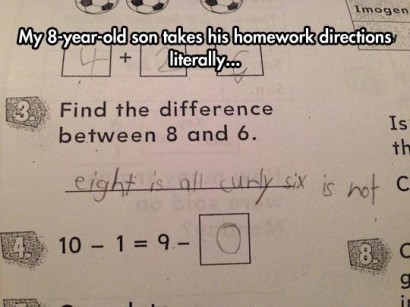 Imogen
My 8-year-old son takes his homework directions
literally...
4 + 2 6
3. Find the difference
between 8 and 6.
Is
th
eight is all curly six is not
C
4. 10 - 1 = 9 - 0
8.
C
g